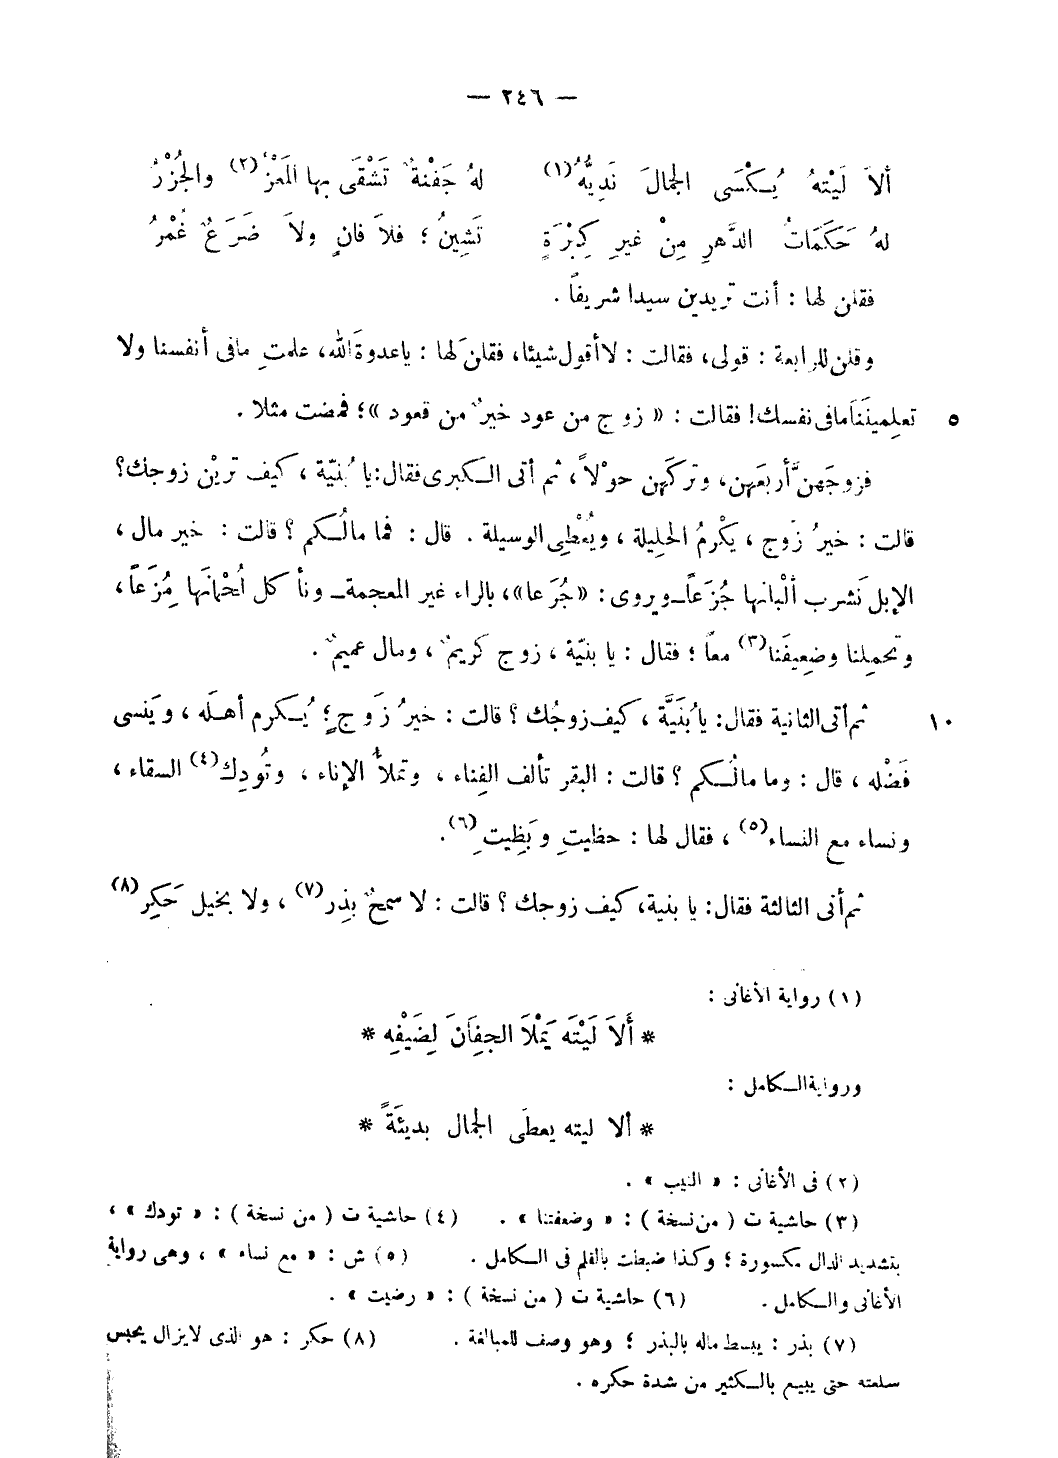 — ٢٤٦ —
ألاَ لَيْتَهُ يُكْسَى الجمالَ نَدِيُّهُ(١) لهُ جَفْنةٌ تَشْقَى بها المَعْزُ(٢) والجُزْرُ
لهُ حَكَمَاتُ الدَّهرِ مِنْ غيرِ كِبْرَةٍ تَشِينُ ؛ فلاَ فانٍ ولاَ ضَرَعٌ غُمْرُ
فقلن لها : أنت تريدين سيدا شريفاً .
وقلن للرابعة : قولى، فقالت : لا أقول شيئا، فقلن لها : يا عدوةَ الله، علمتِ مافى أنفسنا ولا
٥ تعلِمينَنَا مافى نفسك! فقالت : « زوج من عود خيرٌ من قعود »؛ فمضت مثلا .
فزوجَهنَّ أربعَهن، وتركَهن حوْلاً، ثم أتى الكبرى فقال: يا بُنيّة ، كيف تريْن زوجك؟
قالت : خيرُ زَوج ، يكْرِمُ الحليلة ، ويُعْطِى الوسيلة . قال : فما مالُكم ؟ قالت : خير مال ،
الإبل نَشرب ألْبانها جُزَعاً ــ ويروى : «جُرَعا»، بالراء غير المعجمة ــ ونأ كل لُحْمانَها مُزَعاً ،
وتحمِلنا وضعِيفَنا(٣) معاً ؛ فقال : يا بنيّة ، زوج كريمٌ ، ومال عميمٌ .
١٠ ثم أتى الثانية فقال: يا بُنَيَّة ، كيف زوجُك ؟ قالت : خيرُ زَوجٍ ؛ يُكرم أهله ، وينسى
فَضْله ، قال : وما مالُكم ؟ قالت : البقر تألف الفِناء ، وتملأُ الإناء ، وتُودِك(٤) السقاء ،
ونساء مع النساء(٥) ، فقال لها : حظيتِ وبَظِيتِ(٦) .
ثم أتى الثالثة فقال: يا بنية، كيف زوجك ؟ قالت : لا سمحٌ بذِر(٧) ، ولا بخيل حَكِر(٨)
(١) رواية الأغانى :
* أَلاَ لَيْتَه يَمْلَا الجفَانَ لِضَيْفِه *
ورواية الكامل :
* ألا ليته يعطَى الجمال بديئَةً *
(٢) فى الأغانى : « النيب » .
(٣) حاشية ت ( من نسخة ) : « وضعفتنا » . (٤) حاشية ت ( من نسخة ) : « تودك » ،
بتشديد الدال مكسورة ؛ وكذا ضبطت بالقلم فى الكامل . (٥) ش : « مع نساء » ، وهى رواية
الأغانى والكامل . (٦) حاشية ت ( من نسخة ) : « رضيت » .
(٧) بذر : يبسط ماله بالبذر ؛ وهو وصف للمبالغة . (٨) حكر : هو الذى لا يزال يحبس
سلعته حتى يبيع بالكثير من شدة حكره .